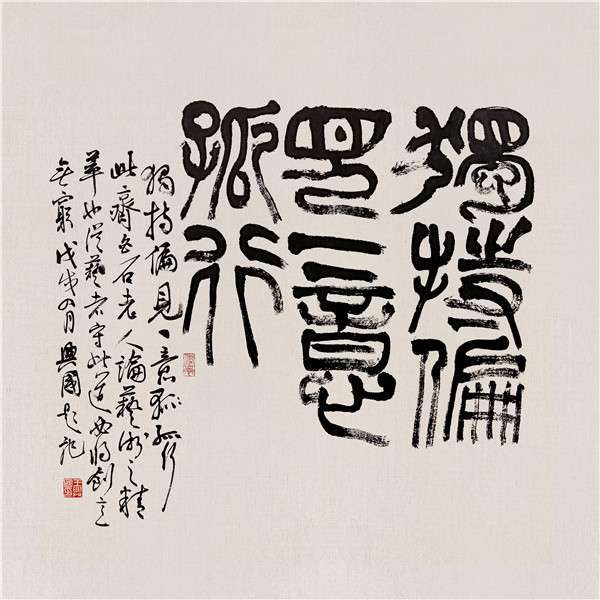 獨持偏
見一意
孤行
獨持偏見一意孤行
此齊白石老人論藝術之精
華也從藝者守此道
無窮戊戌四月興國題記